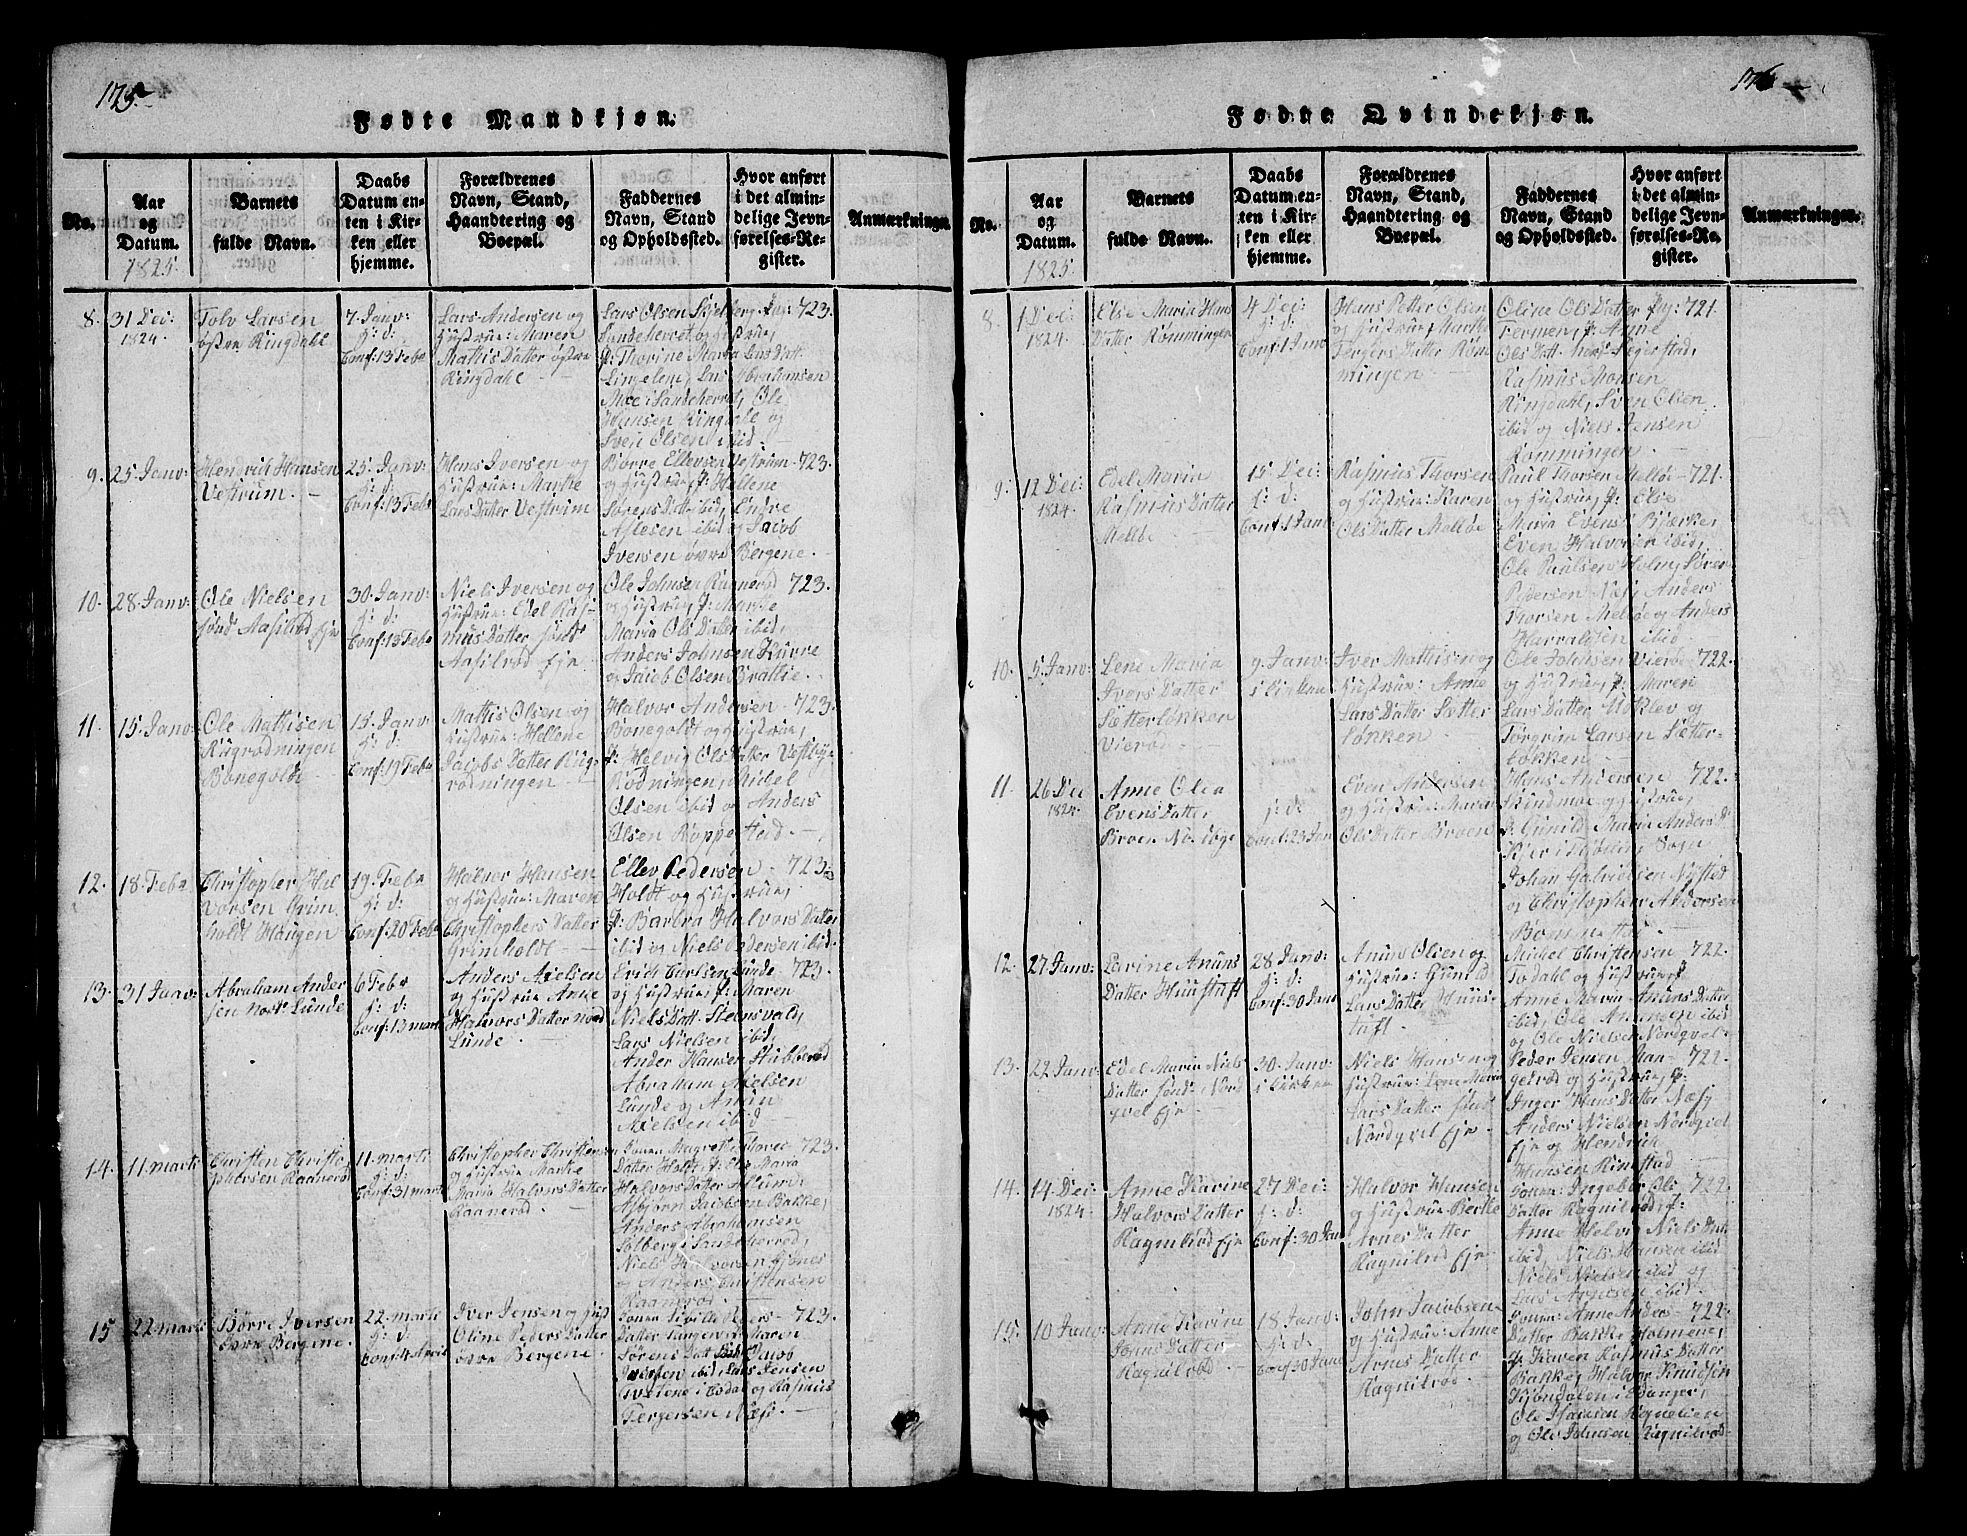 175
Fødte Mandkjøn.
No.
Aar
og
Datum.
1825
Barnets
fulde Navn.
Daabs
Datum en-
ten i Kir-
ken eller
hjemme.
Forældrenes
Navn, Stand,
Haandtering og
Boepæl.
Faddernes
Navn, Stand
og Opholdssted.
Hvor anført
i det almin-
delige Jevn-
førelses-Re-
gister.
Anmærkninger.
8.
31 Dec:
1824.
Tolv Larsen
østre Ringdahl
7 Janv:
h: d:
Conf: 13 Febr
Lars Andersen og
Hustrue: Maren
Mathis Datter østre
Ringdahl
Lars Olsen Skjelberg
Sandeherret og Hustrue,
P: Thorine Maria Lars Datt:
Lingelem, Lars Abrahamsen
Moe i Sandeherred, Ole
Hansen Ringdahl og
Sven Olsen ibid.
723.
9.
25 Janv:
Hendrich Hansen
Vestrum.
25 Janv:
h: d:
Conf: 13 Febr
Hans Iversen og
Hustrue: Marthe
Lars Datter Vestrum
Børre Ellevsen Vestrum
og Hustrue, P: Hellene
Sørens Datt: ibid, Endre
Aslesen ibid og Jacob
Iversen øvre Bergene.
723.
10.
28 Janv:
Ole Nielsen
sønd: Aasilrød Eje
30 Janv:
h: d:
Conf: 13 Febr
Niels Iversen og
Hustrue: Edel Ras-
mus Datter sønd:
Aasilrød Eje
Ole Johnsen Ragnerød
og Hustrue, P: Marthe
Maria Ols Datter ibid,
Anders Johnsen
og Jacob Olsen Brattlie.
723.
11.
15 Janv:
Ole Mathisen
Rugrødningen
Bonegolde
15 Janv:
h: d:
Conf: 19 Febr
Mathis Olsen og
Hustrue: Hellene
Jacobs Datter Rug-
rødningen
Halvor Andersen
Bonegoldt og Hustrue,
P: Helvig Ols Datter
Rødningen, Michel
Olsen ibid og Anders
Olsen Roppestad.
723.
12.
18 Febr
Christopher Hal
vorsen Grim
holdt Haugen
19 Febr
h: d:
Conf: 20 Febr
Halvor Hansen
og Hustrue: Maren
Christophers Datter
Grimholdt
Ellev Pedersen
Holdt og Hustrue,
P: Barbra Halvors Datter
ibid og Niels Pedersen ibid.
723.
13.
31 Janv:
Abraham Ander
sen nord: Lunde
6 Febr
h: d:
Conf: 13 Marti
Anders Nielsen
og Hustrue Anne
Halvors Datter nord
Lunde
Erich Carlsen Lunde
og Hustrue, P: Maren
Niels Datt: Steensvald,
Lars Nielsen ibid,
Ander Hansen
Abraham Nielsen
Lunde og Anun
Nielsen ibid
723.
14.
11 Marti
Christen Christo
phersen Raanerød
11 Marti
h: d:
Conf: 31 Marti
Christopher Christensen
og Hustrue Marthe
Maria Halvors Datter
Raanerød.
Magrethe Thores
Datter Holdt, P: Else Maria
Halvors Datter Aslund,
Asbjørn Jacobsen Bakke,
Anders Abrahamsen
Solberg i Sandeherred,
Niels Halvorsen
og Anders Christensen
Raanerød.
723.
15
22 Marti
Børre Iversen
øvre Bergene.
22 Marti
h: d:
Conf: 4 April
Iver Jensen og Hust
Oline Peders Datter
øvre Bergene.
Sibille Peders-
Datter P: Maren
Sørens Datt Jacob
Iversen ibid, Lars Jensen
og Rasmus
Tergersen Næss.
723.
176
Fødte Qvindekjøn.
No.
Aar
og
Datum.
1825.
Barnets
fulde Navn.
Daabs
Datum en-
ten i Kir-
ken eller
hjemme.
Forældrenes
Navn, Stand,
Haandtering og
Boepæl.
Faddernes
Navn, Stand
og Opholdssted.
Hvor anført
i det almin-
delige Jevn-
førelses-Re-
gister.
Anmærkninger.
8.
1 Dec:
1824.
Else Maria Hans
Datter Rømmingen
4 Dec:
h: d:
Conf: 1 Janv
Hans Petter Olsen
og Hustrue Marthe
Tergers Datter Røm
mingen
Oline Ols Datter
Fermen, P: Anne
Ols Datt: Segerstad,
Rasmus Monsen
Ringdahl, Sven Olsen
ibid og Niels Jensen
Rømmingen
721.
9.
12 Dec:
1824.
Edel Maria
Rasmus Datter
Melløe
15 Dec:
h: d:
Conf: 1 Janv
Rasmus Thorsen
og Hustrue: Karen
Ols Datter Melløe
Paul Thorsen Melløe
og Hustrue, P: Else
Maria Evens D Bjerke,
Even Halvorsen ibid,
Ole Paulsen Holm, Søren
Pedersen Næs, Anders
Thorsen Melløe og Anders
Harraldsen ibid.
721.
10.
5 Janv:
Lene Maria
Ivers Datter
Sætterløkken
Vierød.
9 Janv:
i Kirken
Iver Mathisen og
Hustrue: Anne
Lars Datter Sætter
løkken.
Ole Johnsen Vierød
og Hustrue, P: Maren
Lars Datter Meklev og
Torgrim Larsen Sætter-
løkken
722.
11.
26 Dec
1824.
Anne Olea
Evens Datter
Broen No.
h: d:
Conf: 23 Janv
Even Andersen
og Hustrue: Maria
Ols Datter Broen
Hans Andersen
Skindmoe og Hustrue,
P: Gunild Maria Anders D:
Sogn
Johan
og Christopher Andersen
722.
12.
27 Janv:
Larine Anuns
Datter Huustuft
28 Janv:
h: d:
Conf: 30 Janv
Anun Olsen og
Hustrue: Gunild
Lars Datter Huus-
tuft.
Michel Christensen
Todahl og Hustrue, P
Anne Maria Anuns Datter
ibid, Ole Andersen ibid
og Ole Nielsen Nordqvel
722.
13.
22 Janv:
Edel Maria Niels
Datter sønd: Nord
qvel Eje
30 Janv:
i Kirken
Niels Hansen og
Hustrue: Lene Maria
Lars Datter sønd
Nordqvel Eje
Peder Jensen Man-
gerød og Hustrue, P:
Inger Hans Datter Næss,
Anders Nielsen Nordqvel
Eje og Hendrich
Hansen Rimstad
722.
14.
14 Dec:
1824.
Anne Karine
Halvors Datter
Ragnilrød Eje
27 Dec:
h: d:
Conf: 30 Janv
Halvor Hansen
og Hustrue Berthe
Arnes Datter
Ragnilrød Eje
Ingebor Ols
Datter Ragnilrød, P:
Anne Helvig Niels Datt
ibid, Niels Hansen ibid
Niels Nielsen ibid og
Lars Arnesen ibid.
722.
15.
10 Janv:
Anne Karine
Johns Datter
Ragnilrød
18 Janv:
h: d:
Conf: 30 Janv
John Jacobsen
og Hustrue: Anne
Arnes Datter
Ragnilrød
Anne Anders
Datter Bakke Holmene,
P: Karen Rasmus Datter
Bakke, Halvor Knudsen
Kjøndalen i
Ole Hansen
og Ole Johnsen Ragnilrød
722.